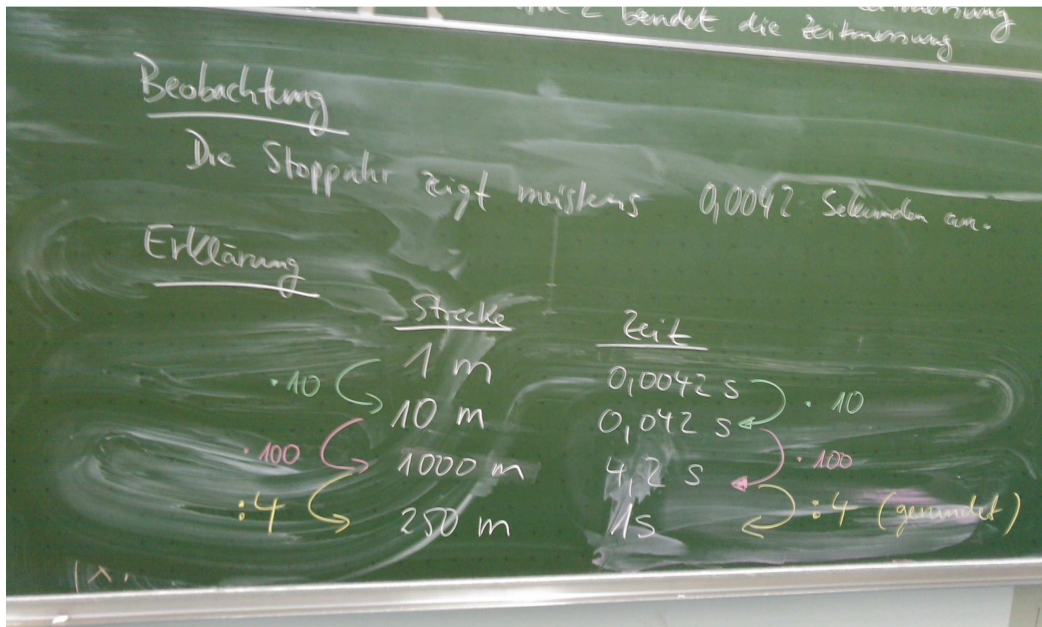 bendet die Zeitmessung
Beobachtung
Die Stoppuhr zeigt meistens 0,0042 Sekunden an.
Erklärung
Strecke Zeit
1 m 0,0042 s
·10 ·10
10 m 0,042 s
·100 ·100
1000 m 4,2 s
:4 :4 (gerundet)
250 m 1s